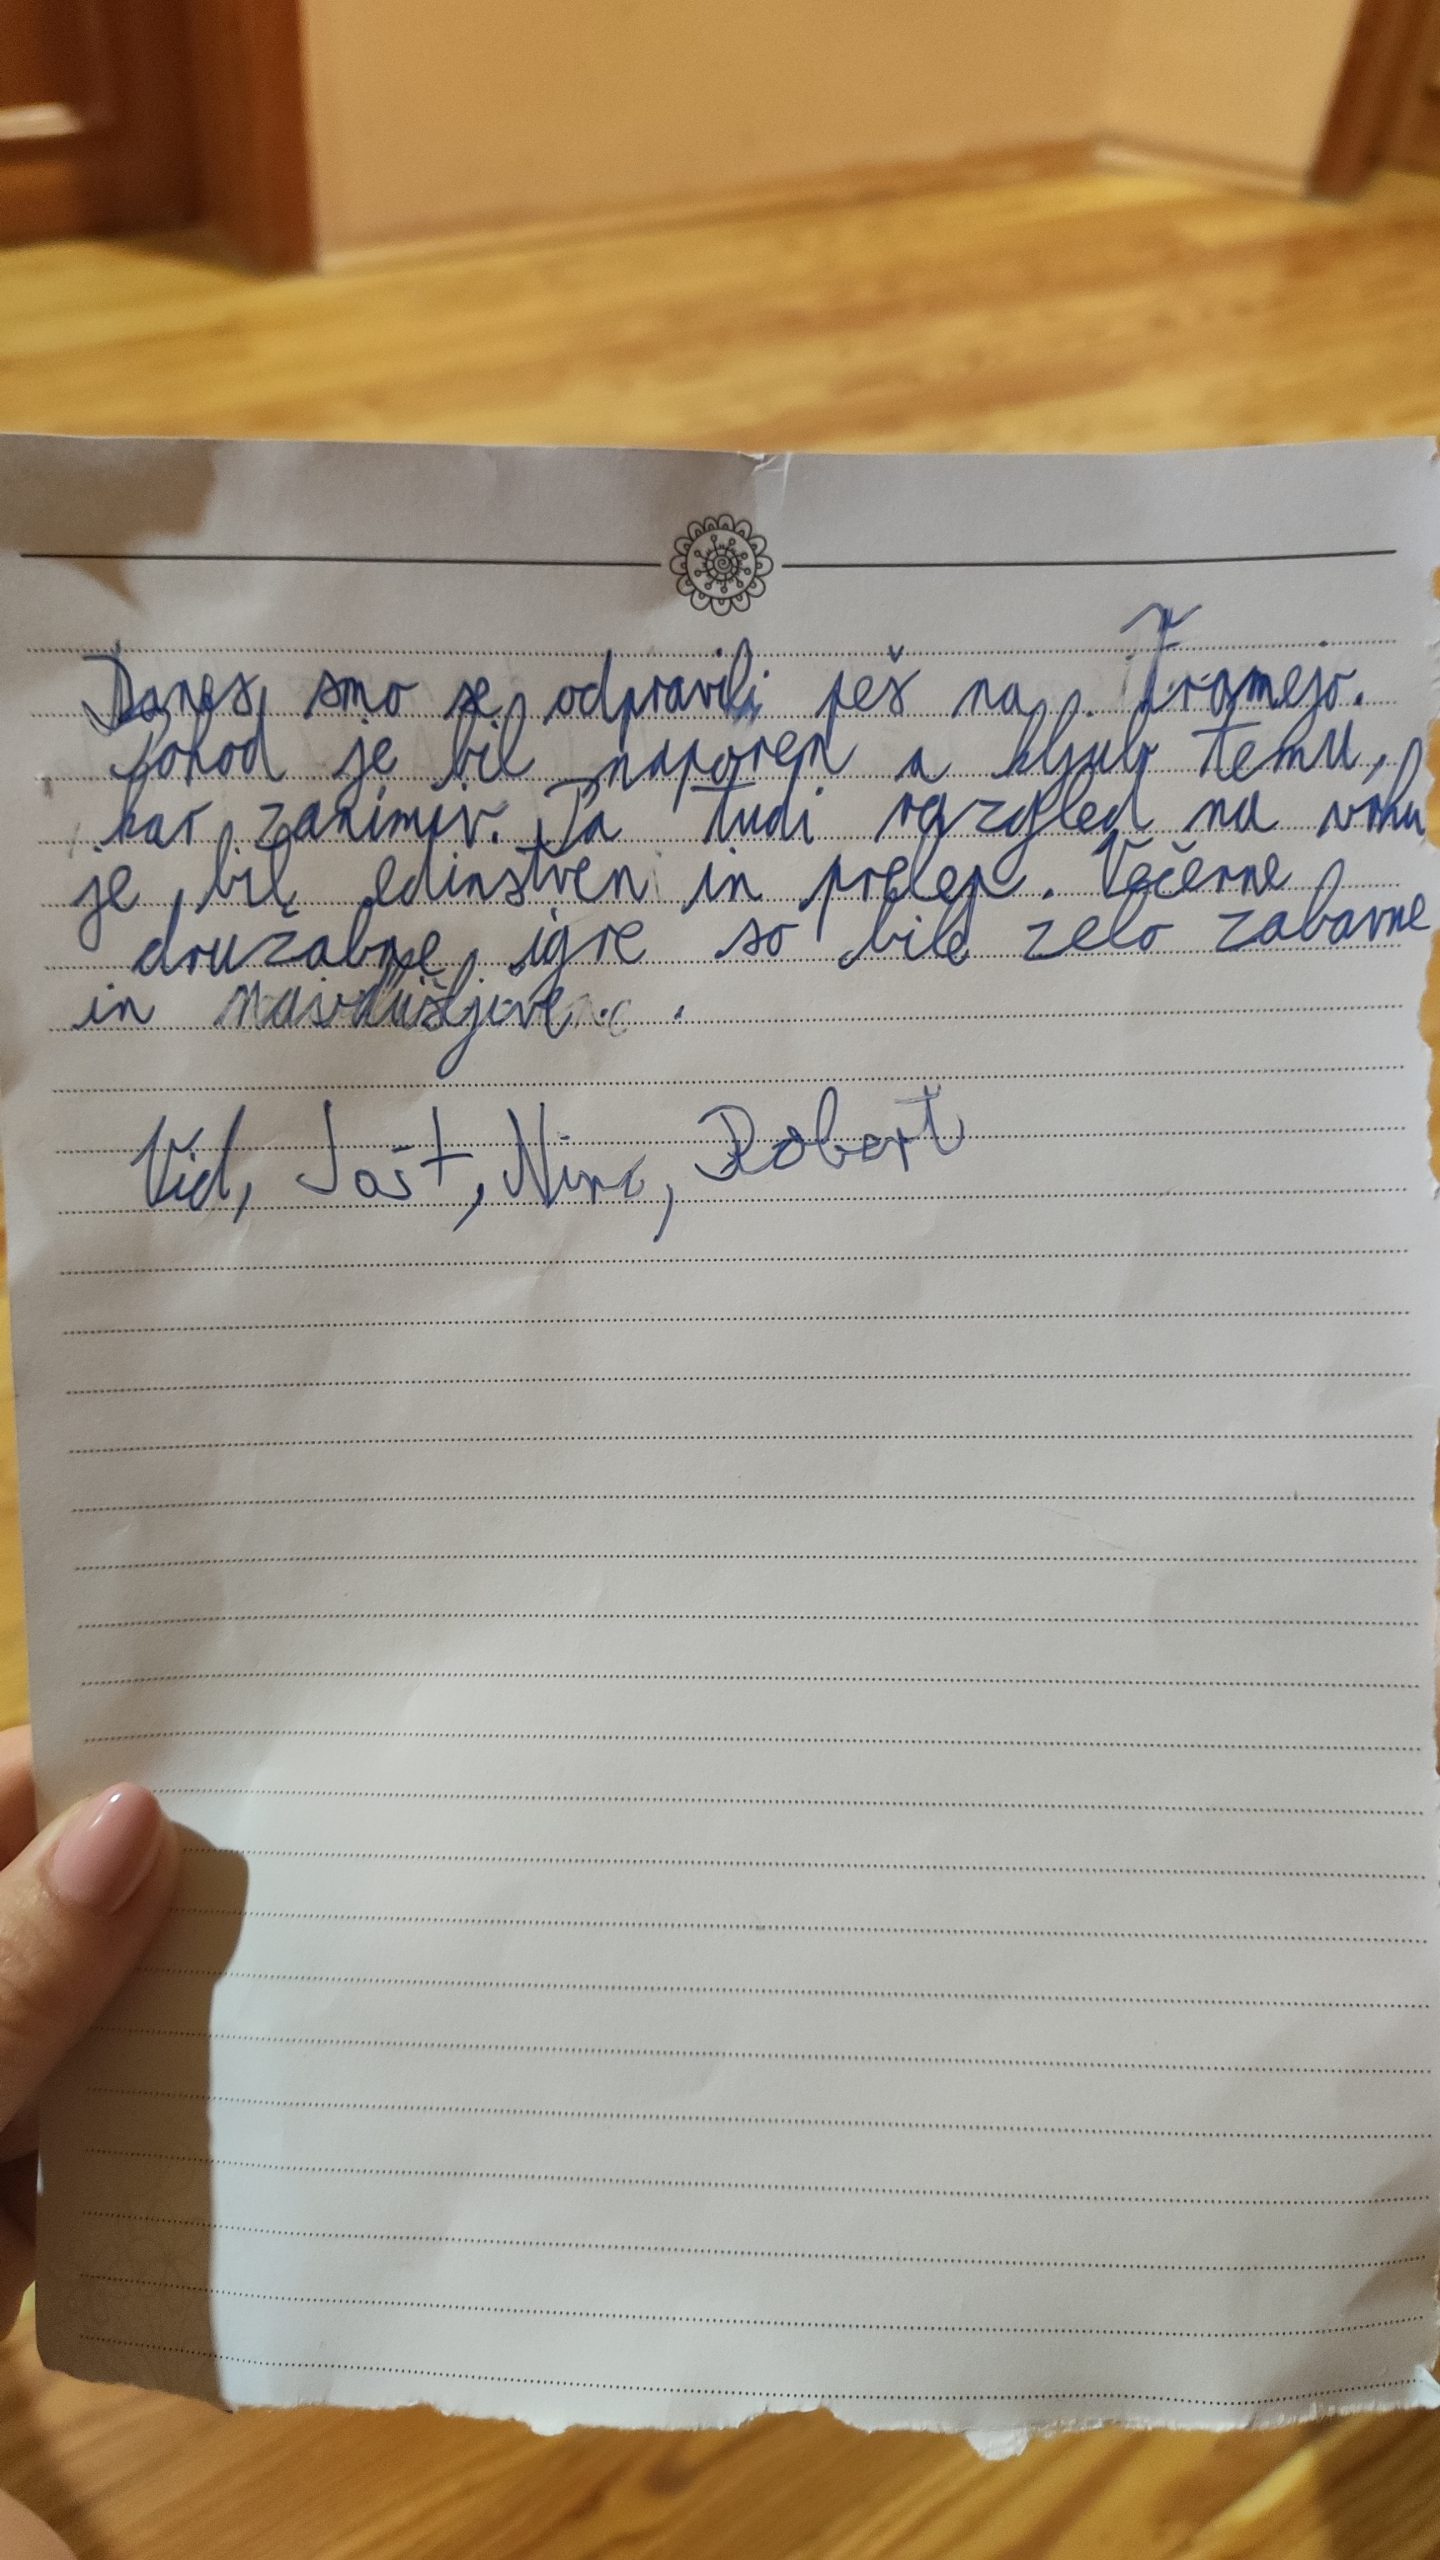 Danes smo se odpravili peš na Tromejo.
Pohod je bil naporen a kljub temu,
kar zanimiv. Pa tudi razgled na vrhu
je bil edinstven in prelep. Večerne
družabne igre so bile zelo zabavne
in
Vid, Jošt, Nina, Robert